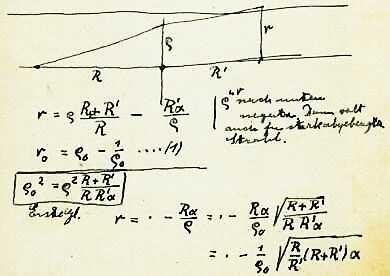 ρ r
R R'
r = ρ (R+R')/R − R'α/ρ
ρ" nach unten
negativ. Dann gilt
auch für stark abgebeugten
Strahl.
r₀ = ρ₀ − 1/ρ₀ ....(1)
ρ₀² = ρ² (R+R')/(R R'α)
r = · − Rα/ρ = · − Rα/ρ₀ √((R+R')/(R R'α))
= · − 1/ρ₀ √(R/R' (R+R') α)